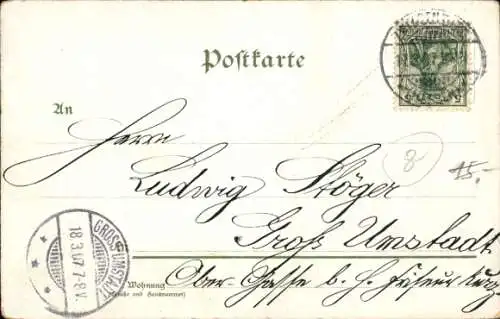 Postkarte
An
Herrn
Ludwig Stöger
Groß Umstadt
Ober-Gasse b. H. Friseur Kurz
Wohnung
(Straße und Hausnummer)
GROSS-UMSTADT
18.3.07 7-8.V.
8
15.-